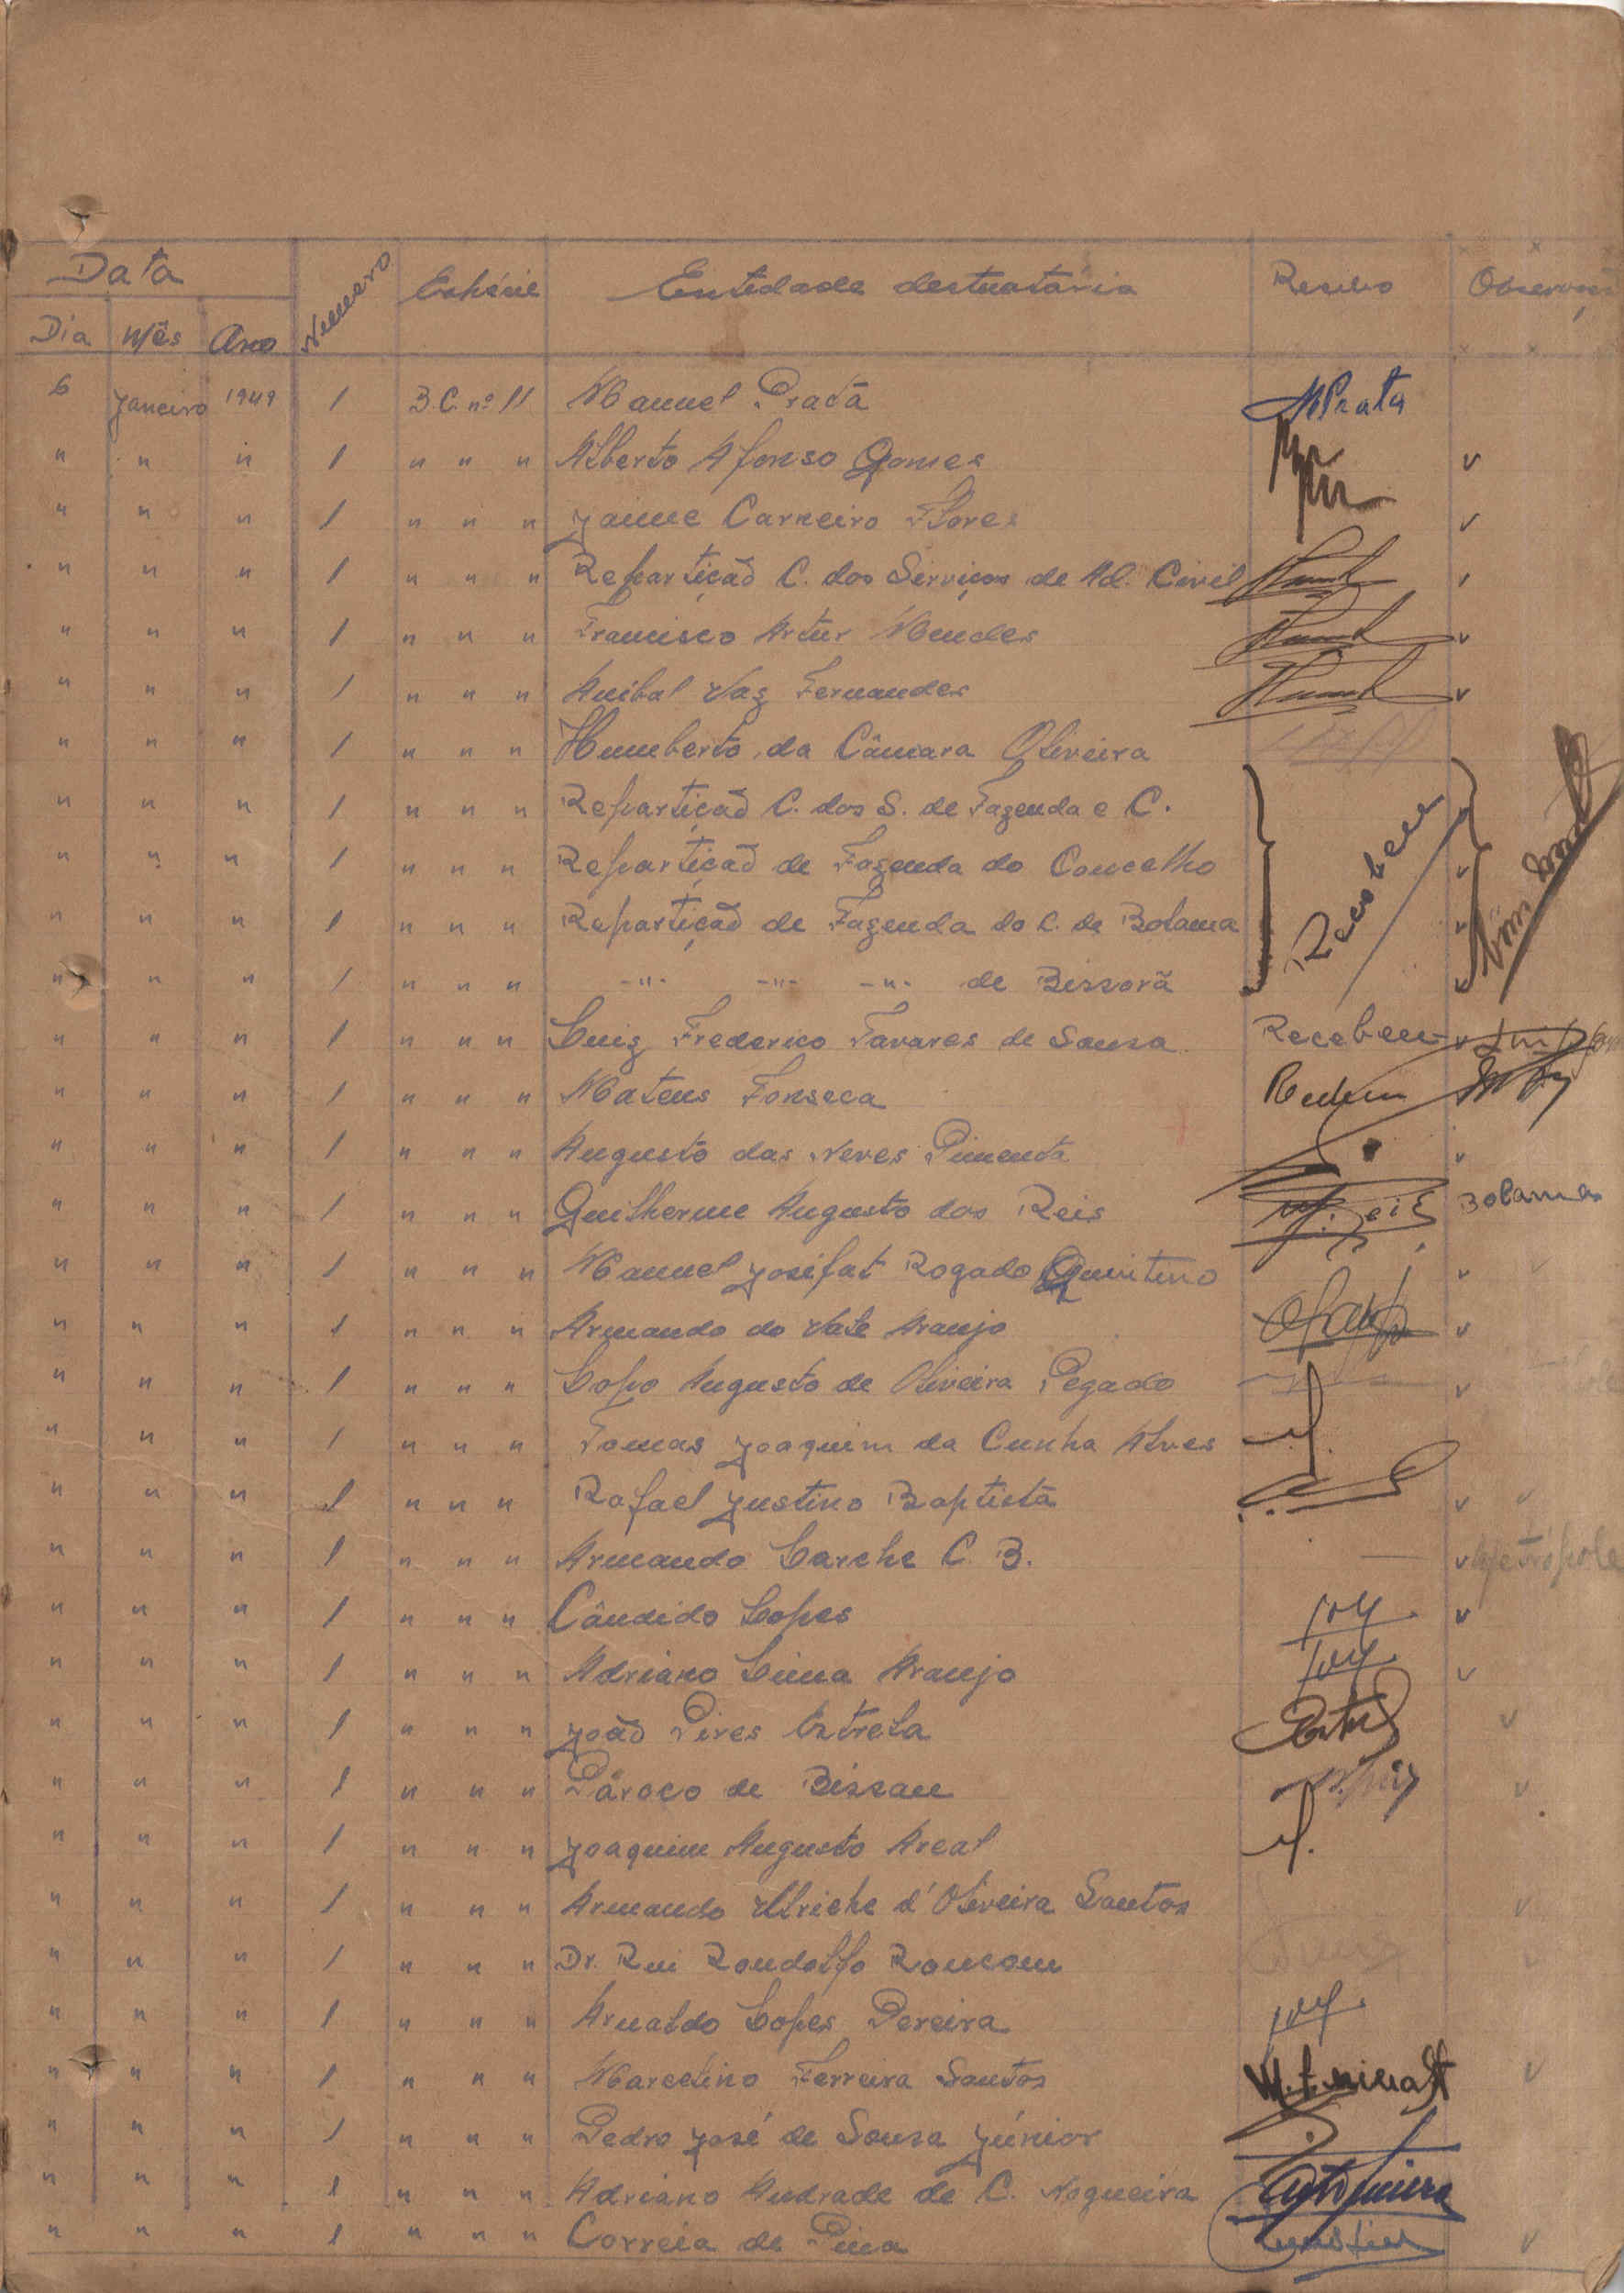 Data Numero Espécie Entidade destinatária Recibo
Dia Mês Ano
6 Janeiro 1949 1 B.C. nº 11 Manuel Pratã MPrata
" " " 1 " " " Alberto Afonso Gomes v
" " " 1 " " " Jaime Carneiro Flores v
" " " 1 " " " Repartição C. dos Serviços de Ad. Civil v
" " " 1 " " " Francisco Artur Mendes v
" " " 1 " " " Anibal Vaz Fernandes v
" " " 1 " " " Humberto da Câmara Oliveira
" " " 1 " " " Repartição C. dos S. de Fazenda e C. v
" " " 1 " " " Repartição de Fazenda do Concelho Recebeu v
" " " 1 " " " Repartição de Fazenda do C. de Bolama v
" " " 1 " " " -"- -"- -"- de Bissorã v
" " " 1 " " " Luiz Frederico Tavares de Sousa Recebeu v
" " " 1 " " " Mateus Fonseca
" " " 1 " " " Augusto das Neves Pimenta v
" " " 1 " " " Guilherme Augusto dos Reis Bolama
" " " 1 " " " Manuel Josifat Rogado Quintino v
" " " 1 " " " Armando do Vale Araujo v
" " " 1 " " " Lopo Augusto de Oliveira Pegado v
" " " 1 " " " Tomas Joaquim da Cunha Alves
" " " 1 " " " Rafael Justino Baptista v v
" " " 1 " " " Armando Larche C. B. — v Metrópole
" " " 1 " " " Cândido Lopes v
" " " 1 " " " Adriano Lima Araujo v
" " " 1 " " " João Pires Estrela v
" " " 1 " " " Pároco de Bissau v
" " " 1 " " " Joaquim Augusto Areal
" " " 1 " " " Armando Ulriche d'Oliveira Santos v
" " " 1 " " " Dr. Rui Randolfo v
" " " 1 " " " Arnaldo Lopes Pereira
" " " 1 " " " Marcelino Ferreira Santos v
" " " 1 " " " Pedro José de Sousa Júnior
" " " 1 " " " Adriano Andrade de C. Nogueira
" " " 1 " " " Correia de Pina v